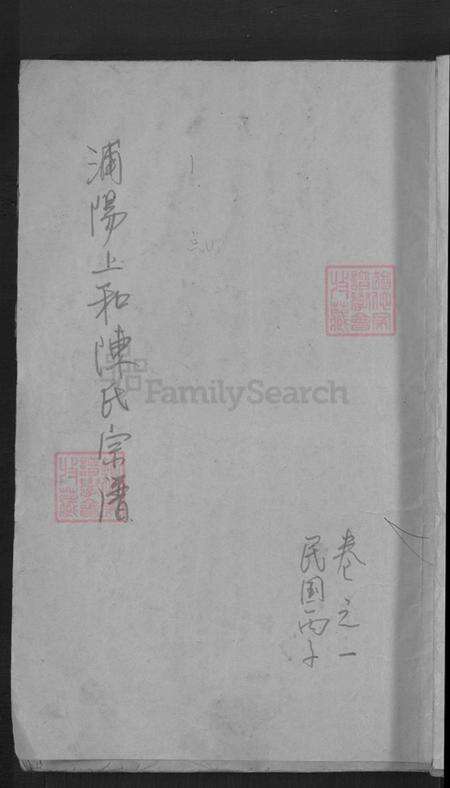 浦陽上和陳氏宗譜
卷之一
民国丙子
FamilySearch